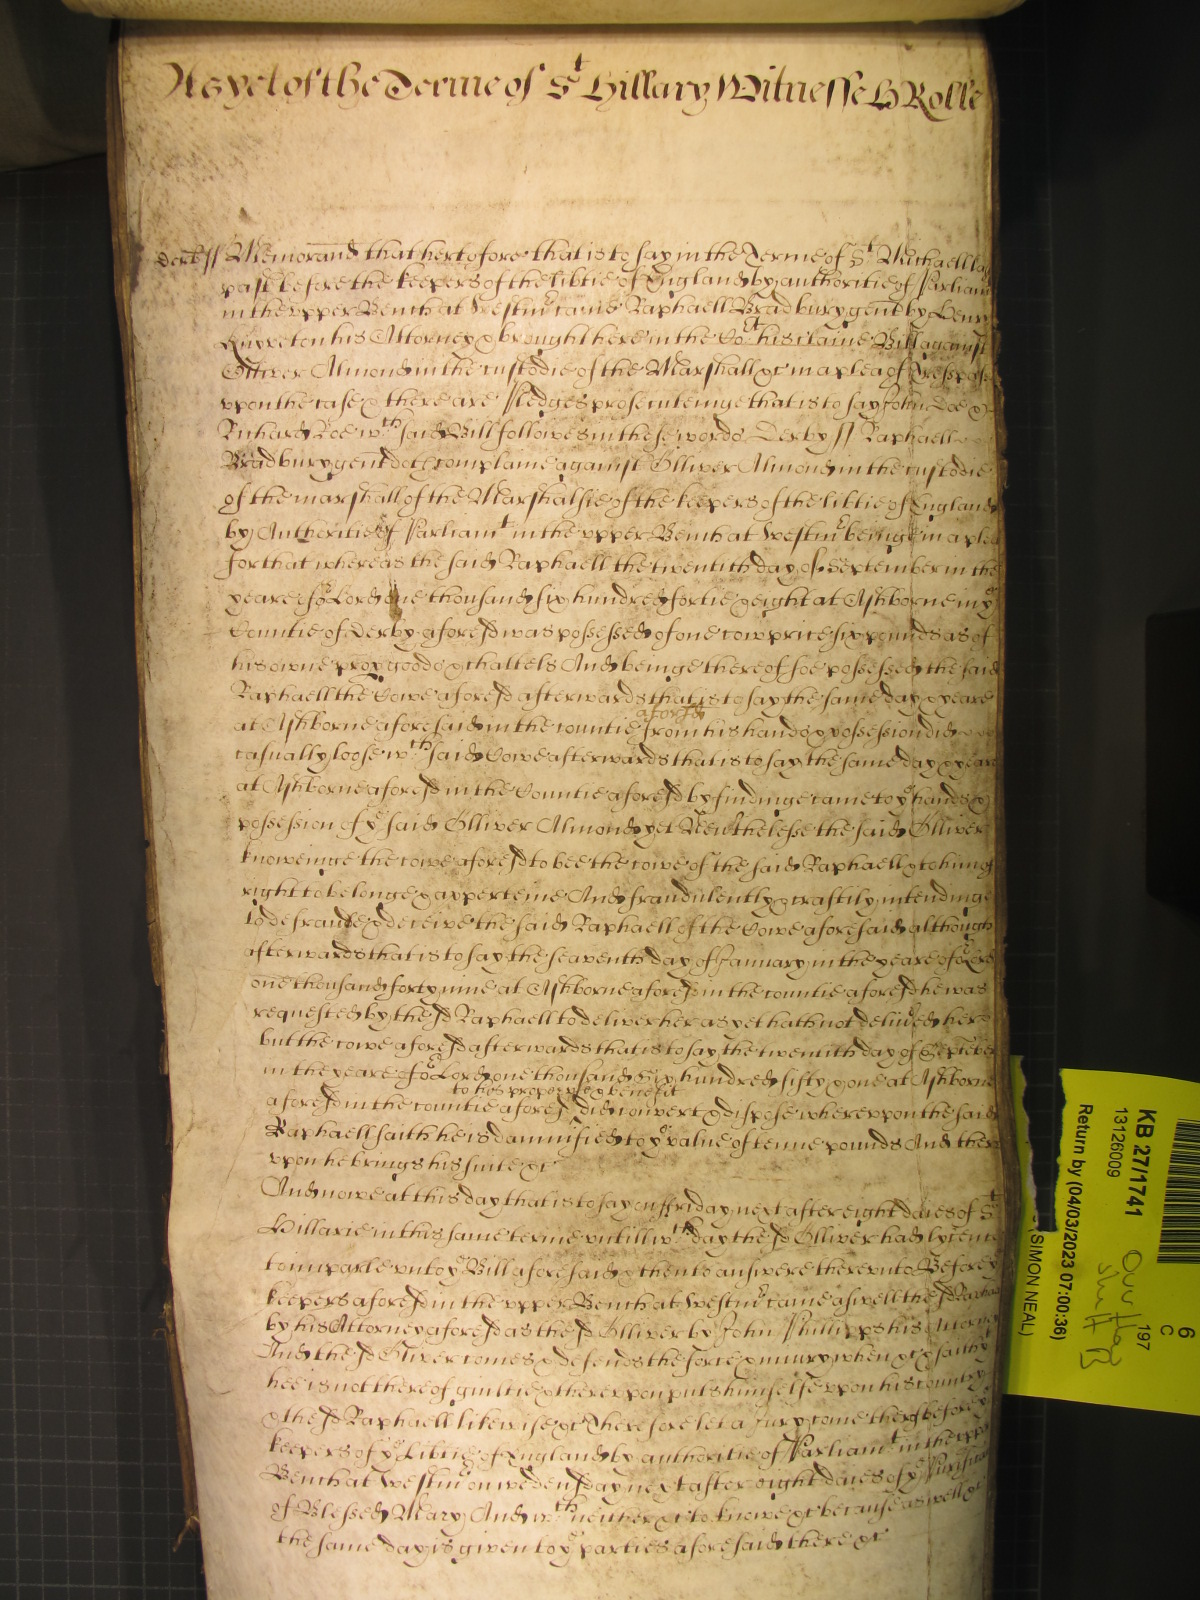 As yet of the Terme of St Hillary Witnesse H Rolle
Derb ss Memorand that hertofore that is to say in the Terme of St Michaell last
past before the keepers of the libtie of England by authoritie of Parliamt
in the upper Bench at Westmr came Raphaell Bradbury gent by Henry
his Attorney & brought here in the Cort his claime Bill against
Olliver Almond in the custodie of the Marshall &c in a plea of Trespass
upon the case & there are Pledges prosecuteinge that is to say John Doe &
Richard Roe wch said Bill followes in these words Derby ss Raphaell
Bradbury gent doth complaine against Olliver Almond in the custodie
of the marshall of the Marshalsie of the keepers of the libtie of England
by Authoritie of Parliamt in the upper Bench at Westmr beinge in a plea
for that whereas the said Raphaell the twentith day of September in the
yeare of or Lord one thousand six hundred fortie & eight at Ashborne in ye
Countie of Derby aforesd was possessed of one cow price six pounds as of
his owne prop goods & chattels And beinge thereof soe possessed the said
Raphaell the Cowe aforesd afterwards that is to say the same day & yeare
aforesd
at Ashborne aforesaid in the countie from his hands & possession did
casually loose wch said Cowe afterwards that is to say the same day & yeare
at Ashborne aforesd in the Countie aforesd by findinge came to ye hands &
possession of ye said Olliver Almond yet Neverthelesse the said Olliver
knoweinge the cowe aforesd to bee the cowe of the said Raphaell & to him of
right to belonge & apperteine And fraudulently & craftily intendinge
to defraude & deceive the said Raphaell of the Cowe aforesaid although
afterwards that is to say the seaventh day of January in the yeare of or Lord
one thousand forty nine at Ashborne aforesd in the countie aforesd he was
requested by the sd Raphaell to deliver her as yet hath not delived her
but the cowe aforesd afterwards that is to say the twentith day of September
in the yeare of or Lord one thousand six hundred fifty & one at Ashborne
to his proper use & benefit
aforesd in the countie aforesd did convert & dispose whereupon the said
Raphaell saith he is damnified to ye value of tenne pounds And there
upon he brings his suite &c
And nowe at this day that is to say on ffriday next after eight daies of St
Hillarie in this same terme untill wch day the sd Olliver had lycence
to imparle unto ye Bill aforesaid & then to answere thereunto Before ye
keepers aforesd in the upper Bench at Westmr came aswell the sd Raphaell
by his Attorney aforesd as the sd Olliver by John Phillipps his Attorney
And the sd Oliver comes & defends the force & iniury when &c & saith yt
hee is not thereof guiltie & thereupon puts himselfe upon his country
& the sd Raphaell likewise &c Therefore let a Jury come thereof before ye
keepers of ye Libtie of England by authoritie of Parliamt in the upper
Bench at Westmr on wedensday next after eight daies of ye Purificacon
of Blessed Mary And wch neither &c to knowe &c because aswell &c
the same day is given to ye parties aforesaid there &c
KB 27/1741
13126009
Return by (04/03/2023 07:00:36)
(SIMON NEAL)
197
C
6